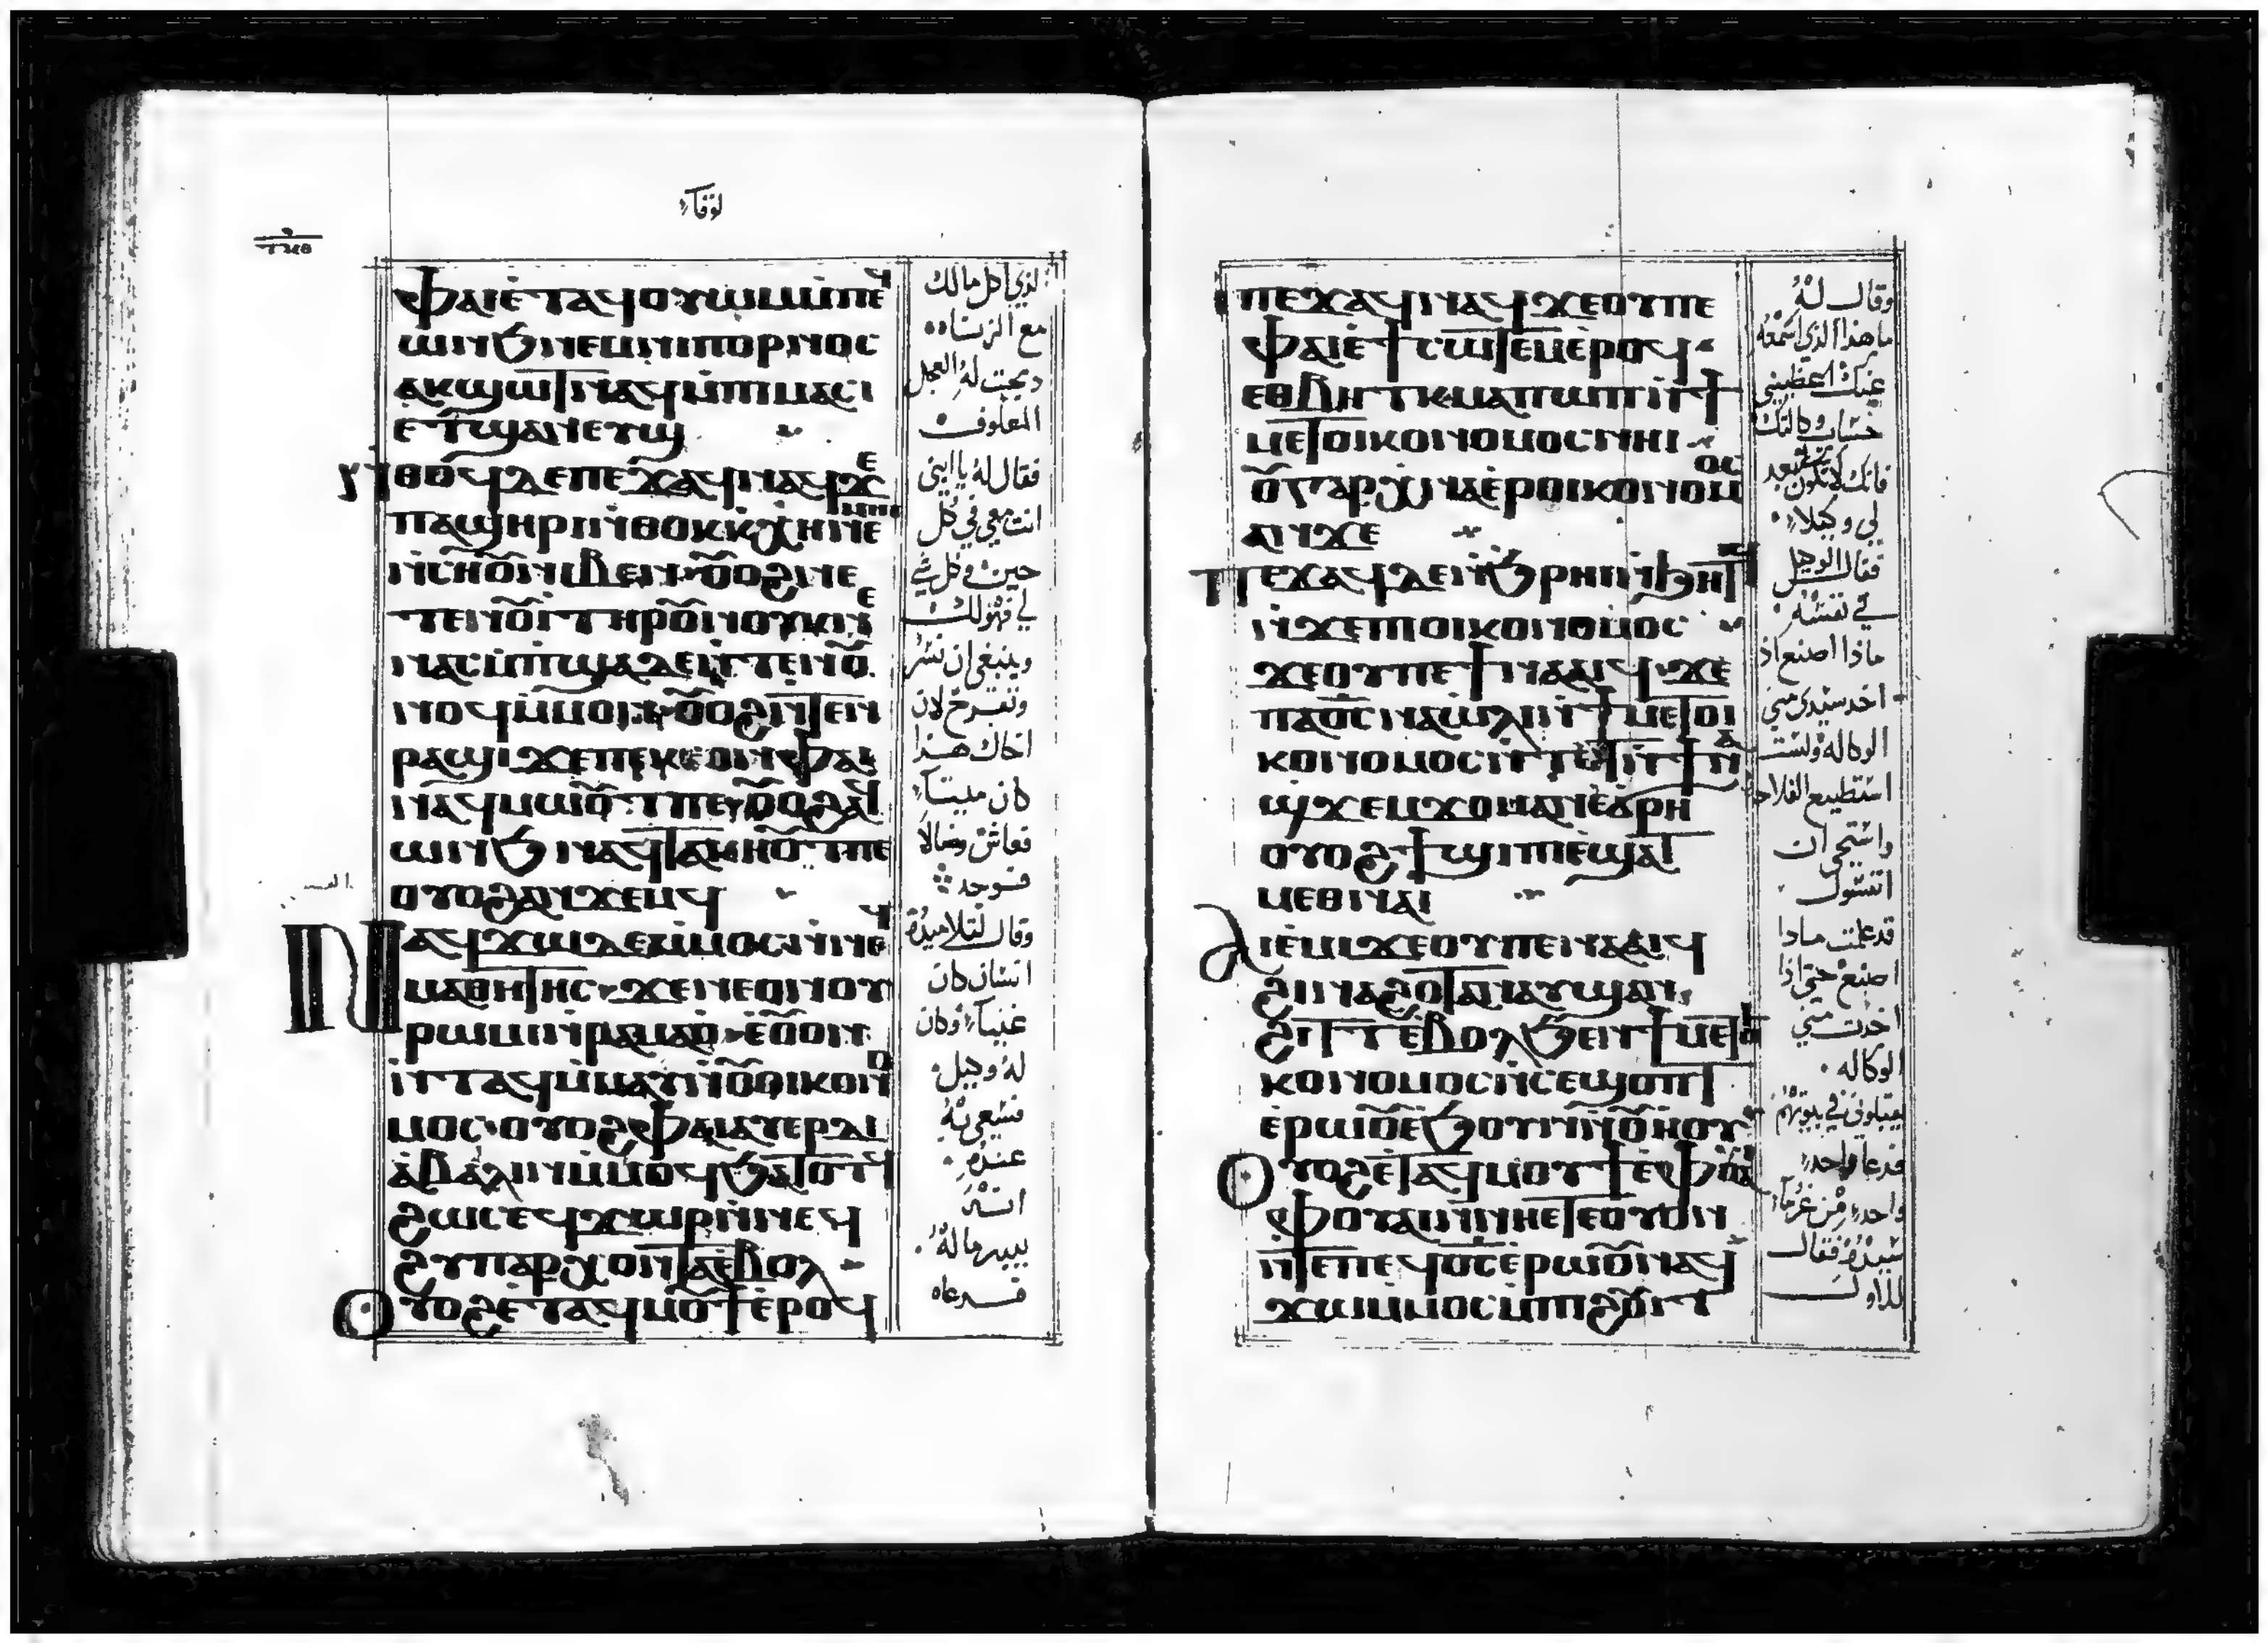 لوقا
ⲫⲁⲓⲉⲧⲁϥⲟⲩⲱⲙⲙ̇ⲡⲉϥ
ⲱⲛϧⲛⲉⲙⲛⲓⲡⲟⲣⲛⲟⲥ
ⲁⲕϣⲱⲧⲛⲁϥⲙ̇ⲡⲓⲙⲁⲥⲓ
ⲉⲧϣⲁⲛⲉⲩϣ
ⲛⲑⲟϥⲇⲉⲡⲉϫⲁϥⲛⲁϥϫⲉ
ⲡⲁϣⲏⲣⲓⲛ̇ⲑⲟⲕⲕⲭⲏⲛⲉⲙⲏⲓ
ⲛ̇ⲥⲏⲟ̅ⲛⲓⲃⲉⲛ ⲟ̅ⲟϩⲛⲉ
ⲧⲉⲛⲟ̅ⲓⲧⲏⲣⲟ̅ⲛⲟⲩⲕⲛⲉ
ⲛⲁⲥⲙ̇ⲡϣⲁⲇⲉⲛ̇ⲧⲉⲛⲟ̅
ⲛⲟϥⲙ̇ⲙⲟⲛ ⲟ̅ⲟϩⲛ̇ⲧⲉⲛ
ⲣⲁϣⲓϫⲉⲡⲉⲕⲥⲟⲛⲫⲁⲓ
ⲛⲁϥⲙⲱⲟ̅ⲧⲡⲉ ⲟ̅ⲟϩⲁϥ
ⲱⲛϧ ⲛⲁϥⲧⲁⲕⲏⲟ̅ⲧⲡⲉ
ⲟⲩⲟϩⲁⲩϫⲉⲙϥ
ⲛⲁϥϫⲱⲇⲉⲙ̇ⲙⲟⲥⲛ̇ⲛⲉϥ
ⲙⲁⲑⲏⲧⲏⲥ ϫⲉⲛⲉⲟⲛⲟⲩ
ⲣⲱⲙⲓⲛ̇ⲣⲁⲙⲁⲟ̇ ⲉ̇ⲟ̅ⲟⲛ
ⲛ̇ⲧⲁϥⲙ̇ⲙⲁⲩⲛ̇ⲟ̅ⲟⲓⲕⲟⲛⲟ
ⲙⲟⲥ ⲟⲩⲟϩⲫⲁⲓⲁⲩⲉⲣⲇⲓ
ⲁ̇ⲃⲁⲗⲓⲛⲙ̇ⲙⲟϥϧⲁⲧⲟⲧϥ
ϩⲱⲥⲉϥϫⲱⲣⲛ̇ⲛⲉϥ
ϩⲩⲡⲁⲣⲭⲟⲛⲧⲁⲉ̇ⲃⲟⲗ
ⲟⲩⲟϩⲉ̇ⲧⲁϥⲙⲟ̅ϯⲉ̇ⲣⲟϥ
الذي اكل مالك
مع الزناه
دبحت له العجل
المعلوف
فقال له يا ابني
انت معي في كل
حين وكل شي
لي فهو لك
وينبغي ان نسر
ونفرح لان
اخاك هذا
كان ميتا
فعاش وضالا
فوجد
وقال لتلاميذه
انسان كان
غنيا وكان
له وكيل
فسعي به
عنده
انه
يبدر ماله
فدعاه
ⲡⲉϫⲁϥⲛⲁϥϫⲉⲟⲩⲡⲉ
ⲫⲁⲓⲉ̇ϯⲥⲱⲧⲉⲙⲉ̇ⲣⲟϥ
ⲉⲑⲃⲏⲧⲕ ⲙⲁⲡⲱⲡⲛ̇ϯ
ⲙⲉⲧⲟⲓⲕⲟⲛⲟⲙⲟⲥⲛⲏⲓ
ⲟ̅ⲅⲁⲣⲭⲛⲁⲉ̇ⲣⲟⲓⲕⲟⲛⲟⲙⲟⲥ
ⲁⲛϫⲉ
ⲡⲉϫⲁϥⲇⲉⲛ̇ϧⲣⲏⲓⲛ̇ϧⲏⲧϥ
ⲛ̇ϫⲉⲡⲓⲟⲓⲕⲟⲛⲟⲙⲟⲥ
ϫⲉⲟⲩⲡⲉϯⲛⲁⲁⲓϥ ϫⲉ
ⲡⲁⲟ̅ⲥ̅ⲛⲁⲱⲗⲓⲛ̇ϯⲙⲉⲧⲟⲓ
ⲕⲟⲛⲟⲙⲟⲥⲛ̇ⲧⲟⲧ ⲛ̇ϯⲛⲁ
ϣϫⲉⲙϫⲟⲙⲁⲛⲉ̇ϭⲣⲏ
ⲟⲩⲟϩϯϣⲓⲡⲓⲉ̇ϣⲁⲧ
ⲙⲉⲑⲛⲁⲓ
ⲁⲓⲉ̇ⲙⲓϫⲉⲟⲩⲡⲉⲛⲁⲁⲓϥ
ϩⲓⲛⲁϩⲟⲧⲁⲛⲁⲩϣⲁⲛ
ϩⲓⲧⲧⲉ̇ⲃⲟⲗϧⲉⲛϯⲙⲉⲧⲟⲓ
ⲕⲟⲛⲟⲙⲟⲥⲛ̇ⲥⲉϣⲟⲡⲧ
ⲉ̇ⲣⲱⲟ̅ⲉ̇ϧⲟⲩⲛⲛ̇ⲛⲟ̅ⲏⲟⲩ
ⲟⲩⲟϩⲉ̇ⲧⲁϥⲙⲟⲩϯⲉ̇ⲫⲟⲩⲁⲓ
ⲫⲟⲩⲁⲓⲛ̇ⲛⲏⲉⲧⲉⲟⲩⲟⲛ
ⲛ̇ⲧⲉⲡⲉϥⲟ̅ⲥ̅ⲉ̇ⲣⲱⲟ̅ⲛⲁϥ
ϫⲱⲙ̇ⲙⲟⲥⲙ̇ⲡⲓϩⲟ̅ⲓⲧ
وقال له
ما هذا الذي اسمعه
عنك اعطيني
حساب وكالتك
فانك لا تكون بعد
لي وكيلا
فقال الوكيل
في نفسه
ماذا اصنع اذ
اخد سيدي مني
الوكاله ولست
استطيع الفلاحه
واستحي ان
اتسول
قد علمت مادا
اصنع حتي اذا
اخدت مني
الوكاله
يقبلوني في بيوتهم
فدعا واحد
واحد من غرما
سيده فقال
للاول